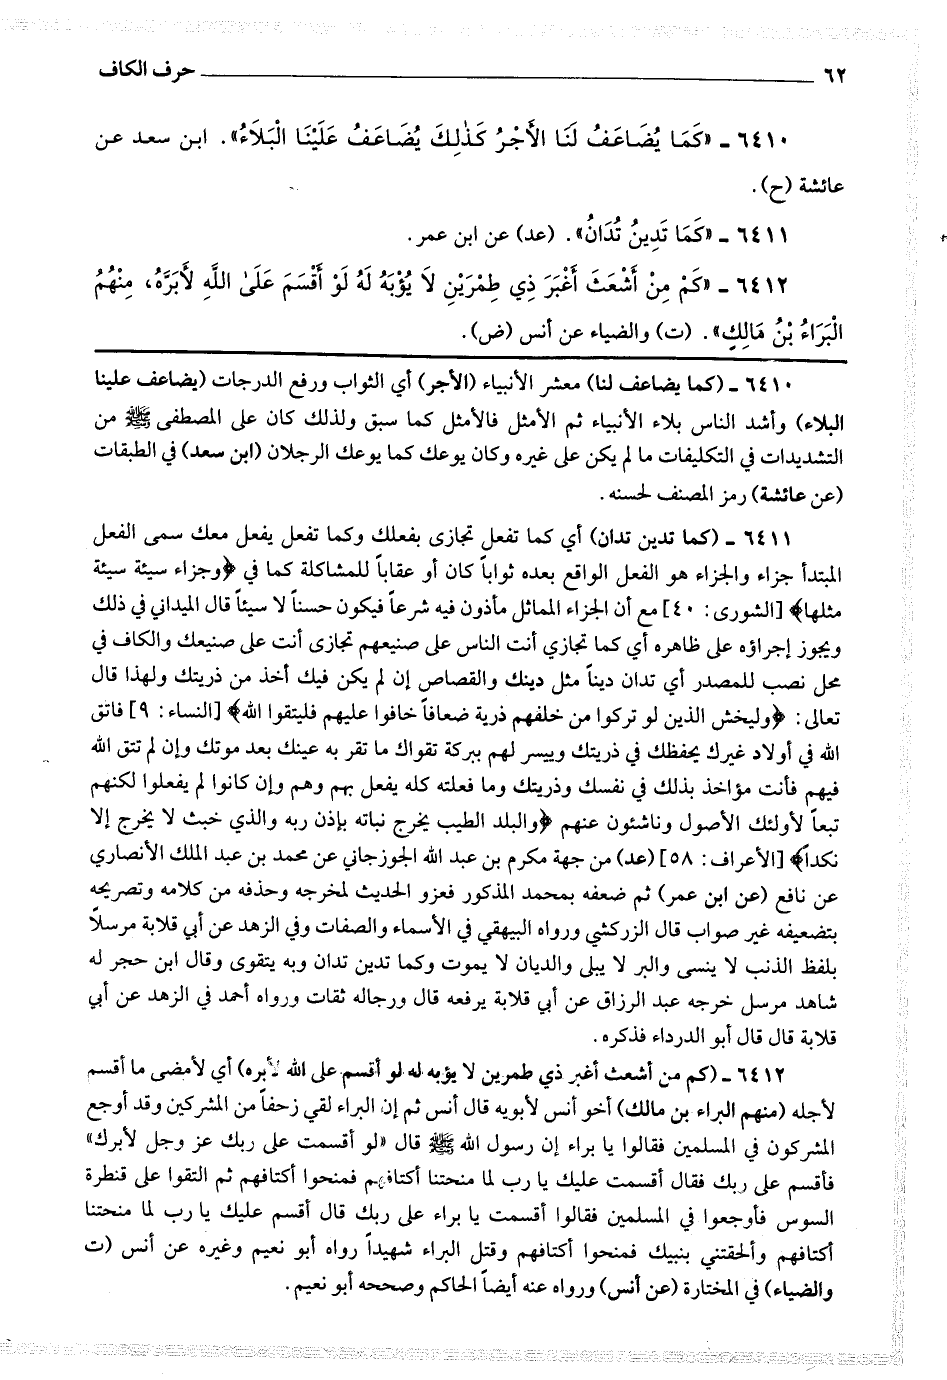 ٦٢ حرف الكاف
٦٤١٠ ـ «كَمَا يُضَاعَفُ لَنَا الأَجْرُ كَذٰلِكَ يُضَاعَفُ عَلَيْنَا الْبَلَاءُ». ابن سعد عن
عائشة (ح).
٦٤١١ ـ «كَمَا تَدِينُ تُدَانُ». (عد) عن ابن عمر.
٦٤١٢ ـ «كَمْ مِنْ أَشْعَثَ أَغْبَرَ ذِي طِمْرَيْنِ لَا يُؤْبَهُ لَهُ لَوْ أَقْسَمَ عَلَىٰ اللَّهِ لأَبَرَّهُ، مِنْهُمُ
الْبَرَاءُ بْنُ مَالِكٍ». (ت) والضياء عن أنس (ض).
٦٤١٠ ـ (كما يضاعف لنا) معشر الأنبياء (الأجر) أي الثواب ورفع الدرجات (يضاعف علينا
البلاء) وأشد الناس بلاء الأنبياء ثم الأمثل فالأمثل كما سبق ولذلك كان على المصطفى ﷺ من
التشديدات في التكليفات ما لم يكن على غيره وكان يوعك كما يوعك الرجلان (ابن سعد) في الطبقات
(عن عائشة) رمز المصنف لحسنه.
٦٤١١ ـ (كما تدين تدان) أي كما تفعل تجازى بفعلك وكما تفعل يفعل معك سمى الفعل
المبتدأ جزاء والجزاء هو الفعل الواقع بعده ثواباً كان أو عقاباً للمشاكلة كما في ﴿وجزاء سيئة سيئة
مثلها﴾ [الشورى: ٤٠] مع أن الجزاء المماثل مأذون فيه شرعاً فيكون حسناً لا سيئاً قال الميداني في ذلك
ويجوز إجراؤه على ظاهره أي كما تجازي أنت الناس على صنيعهم تجازى أنت على صنيعك والكاف في
محل نصب للمصدر أي تدان ديناً مثل دينك والقصاص إن لم يكن فيك أخذ من ذريتك ولهذا قال
تعالى: ﴿وليخش الذين لو تركوا من خلفهم ذرية ضعافاً خافوا عليهم فليتقوا الله﴾ [النساء: ٩] فاتق
الله في أولاد غيرك يحفظك في ذريتك وييسر لهم ببركة تقواك ما تقر به عينك بعد موتك وإن لم تتق الله
فيهم فأنت مؤاخذ بذلك في نفسك وذريتك وما فعلته كله يفعل بهم وهم وإن كانوا لم يفعلوا لكنهم
تبعاً لأولئك الأصول وناشئون عنهم ﴿والبلد الطيب يخرج نباته بإذن ربه والذي خبث لا يخرج إلا
نكداً﴾ [الأعراف: ٥٨] (عد) من جهة مكرم بن عبد الله الجوزجاني عن محمد بن عبد الملك الأنصاري
عن نافع (عن ابن عمر) ثم ضعفه بمحمد المذكور فعزو الحديث لمخرجه وحذفه من كلامه وتصريحه
بتضعيفه غير صواب قال الزركشي ورواه البيهقي في الأسماء والصفات وفي الزهد عن أبي قلابة مرسلاً
بلفظ الذنب لا ينسى والبر لا يبلى والديان لا يموت وكما تدين تدان وبه يتقوى وقال ابن حجر له
شاهد مرسل خرجه عبد الرزاق عن أبي قلابة يرفعه قال ورجاله ثقات ورواه أحمد في الزهد عن أبي
قلابة قال قال أبو الدرداء فذكره.
٦٤١٢ ـ (كم من أشعث أغبر ذي طمرين لا يؤبه له لو أقسم على الله لأبره) أي لأمضى ما أقسم
لأجله (منهم البراء بن مالك) أخو أنس لأبويه قال أنس ثم إن البراء لقي زحفاً من المشركين وقد أوجع
المشركون في المسلمين فقالوا يا براء إن رسول الله ﷺ قال «لو أقسمت على ربك عز وجل لأبرك»
فأقسم على ربك فقال أقسمت عليك يا رب لما منحتنا أكتافهم فمنحوا أكتافهم ثم التقوا على قنطرة
السوس فأوجعوا في المسلمين فقالوا أقسمت يا براء على ربك قال أقسم عليك يا رب لما منحتنا
أكتافهم وألحقتني بنبيك فمنحوا أكتافهم وقتل البراء شهيداً رواه أبو نعيم وغيره عن أنس (ت
والضياء) في المختارة (عن أنس) ورواه عنه أيضاً الحاكم وصححه أبو نعيم.